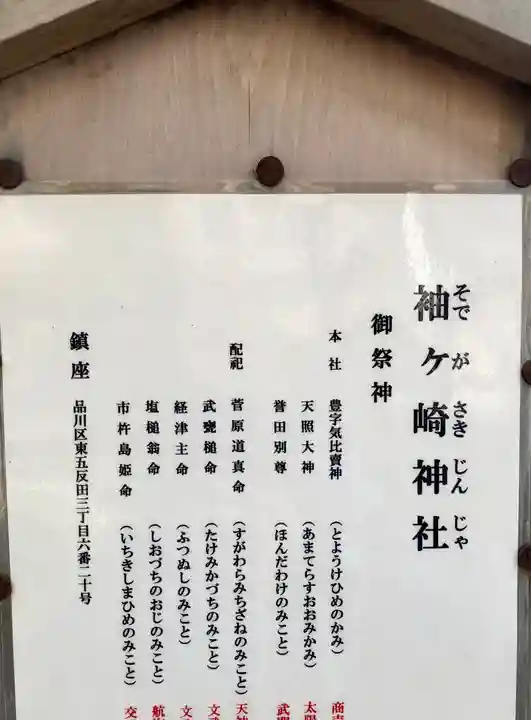 袖ヶ崎神社
そで が さき じん じゃ
御祭神
本社 豊字気比賣神 (とようけひめのかみ) 商売
天照大神 (あまてらすおおみかみ) 太陽
誉田別尊 (ほんだわけのみこと) 武
配祀 菅原道真命 (すがわらみちざねのみこと) 天神
武甕槌命 (たけみかづちのみこと) 文武
経津主命 (ふつぬしのみこと) 文
塩槌翁命 (しおづちのおじのみこと) 航
市杵島姫命 (いちきしまひめのみこと) 交
鎮座 品川区東五反田三丁目六番二十号